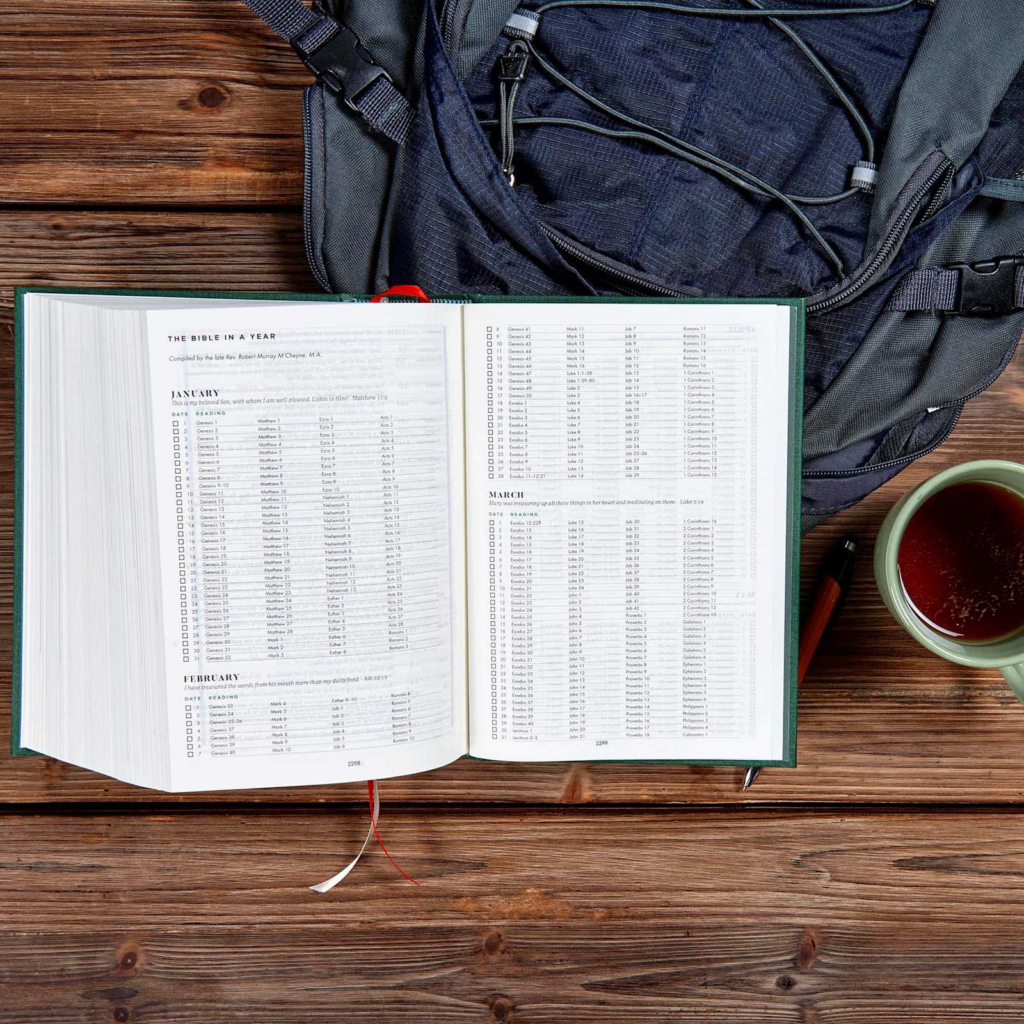 THE BIBLE IN A YEAR
Compiled by the late Rev. Robert Murray M'Cheyne, M.A.
JANUARY
This is my beloved Son, with whom I am well-pleased. Listen to Him! Matthew 17:5
DATE READING
1 Genesis 1 Matthew 1 Ezra 1 Acts 1
2 Genesis 2 Matthew 2 Ezra 2 Acts 2
3 Genesis 3 Matthew 3 Ezra 3 Acts 3
4 Genesis 4 Matthew 4 Ezra 4 Acts 4
5 Genesis 5 Matthew 5 Ezra 5 Acts 5
6 Genesis 6 Matthew 6 Ezra 6 Acts 6
7 Genesis 7 Matthew 7 Ezra 7 Acts 7
8 Genesis 8 Matthew 8 Ezra 8 Acts 8
9 Genesis 9-10 Matthew 9 Ezra 9 Acts 9
10 Genesis 11 Matthew 10 Ezra 10 Acts 10
11 Genesis 12 Matthew 11 Nehemiah 1 Acts 11
12 Genesis 13 Matthew 12 Nehemiah 2 Acts 12
13 Genesis 14 Matthew 13 Nehemiah 3 Acts 13
14 Genesis 15 Matthew 14 Nehemiah 4 Acts 14
15 Genesis 16 Matthew 15 Nehemiah 5 Acts 15
16 Genesis 17 Matthew 16 Nehemiah 6 Acts 16
17 Genesis 18 Matthew 17 Nehemiah 7 Acts 17
18 Genesis 19 Matthew 18 Nehemiah 8 Acts 18
19 Genesis 20 Matthew 19 Nehemiah 9 Acts 19
20 Genesis 21 Matthew 20 Nehemiah 10 Acts 20
21 Genesis 22 Matthew 21 Nehemiah 11 Acts 21
22 Genesis 23 Matthew 22 Nehemiah 12 Acts 22
23 Genesis 24 Matthew 23 Nehemiah 13 Acts 23
24 Genesis 25 Matthew 24 Esther 1 Acts 24
25 Genesis 26 Matthew 25 Esther 2 Acts 25
26 Genesis 27 Matthew 26 Esther 3 Acts 26
27 Genesis 28 Matthew 27 Esther 4 Acts 27
28 Genesis 29 Matthew 28 Esther 5 Acts 28
29 Genesis 30 Mark 1 Esther 6 Romans 1
30 Genesis 31 Mark 2 Esther 7 Romans 2
31 Genesis 32 Mark 3 Esther 8 Romans 3
FEBRUARY
I have treasured the words from his mouth more than my daily food. Job 23:12
DATE READING
1 Genesis 33 Mark 4 Esther 9-10 Romans 4
2 Genesis 34 Mark 5 Job 1 Romans 5
3 Genesis 35-36 Mark 6 Job 2 Romans 6
4 Genesis 37 Mark 7 Job 3 Romans 7
5 Genesis 38 Mark 8 Job 4 Romans 8
6 Genesis 39 Mark 9 Job 5 Romans 9
7 Genesis 40 Mark 10 Job 6 Romans 10
2298
8 Genesis 41 Mark 11 Job 7 Romans 11
9 Genesis 42 Mark 12 Job 8 Romans 12
10 Genesis 43 Mark 13 Job 9 Romans 13
11 Genesis 44 Mark 14 Job 10 Romans 14
12 Genesis 45 Mark 15 Job 11 Romans 15
13 Genesis 46 Mark 16 Job 12 Romans 16
14 Genesis 47 Luke 1:1-38 Job 13 1 Corinthians 1
15 Genesis 48 Luke 1:39-80 Job 14 1 Corinthians 2
16 Genesis 49 Luke 2 Job 15 1 Corinthians 3
17 Genesis 50 Luke 3 Job 16-17 1 Corinthians 4
18 Exodus 1 Luke 4 Job 18 1 Corinthians 5
19 Exodus 2 Luke 5 Job 19 1 Corinthians 6
20 Exodus 3 Luke 6 Job 20 1 Corinthians 7
21 Exodus 4 Luke 7 Job 21 1 Corinthians 8
22 Exodus 5 Luke 8 Job 22 1 Corinthians 9
23 Exodus 6 Luke 9 Job 23 1 Corinthians 10
24 Exodus 7 Luke 10 Job 24 1 Corinthians 11
25 Exodus 8 Luke 11 Job 25-26 1 Corinthians 12
26 Exodus 9 Luke 12 Job 27 1 Corinthians 13
27 Exodus 10 Luke 13 Job 28 1 Corinthians 14
28 Exodus 11-12:21 Luke 14 Job 29 1 Corinthians 15
MARCH
Mary was treasuring up all these things in her heart and meditating on them. Luke 2:19
DATE READING
1 Exodus 12:22ff Luke 15 Job 30 1 Corinthians 16
2 Exodus 13 Luke 16 Job 31 2 Corinthians 1
3 Exodus 14 Luke 17 Job 32 2 Corinthians 2
4 Exodus 15 Luke 18 Job 33 2 Corinthians 3
5 Exodus 16 Luke 19 Job 34 2 Corinthians 4
6 Exodus 17 Luke 20 Job 35 2 Corinthians 5
7 Exodus 18 Luke 21 Job 36 2 Corinthians 6
8 Exodus 19 Luke 22 Job 37 2 Corinthians 7
9 Exodus 20 Luke 23 Job 38 2 Corinthians 8
10 Exodus 21 Luke 24 Job 39 2 Corinthians 9
11 Exodus 22 John 1 Job 40 2 Corinthians 10
12 Exodus 23 John 2 Job 41 2 Corinthians 11
13 Exodus 24 John 3 Job 42 2 Corinthians 12
14 Exodus 25 John 4 Proverbs 1 2 Corinthians 13
15 Exodus 26 John 5 Proverbs 2 Galatians 1
16 Exodus 27 John 6 Proverbs 3 Galatians 2
17 Exodus 28 John 7 Proverbs 4 Galatians 3
18 Exodus 29 John 8 Proverbs 5 Galatians 4
19 Exodus 30 John 9 Proverbs 6 Galatians 5
20 Exodus 31 John 10 Proverbs 7 Galatians 6
21 Exodus 32 John 11 Proverbs 8 Ephesians 1
22 Exodus 33 John 12 Proverbs 9 Ephesians 2
23 Exodus 34 John 13 Proverbs 10 Ephesians 3
24 Exodus 35 John 14 Proverbs 11 Ephesians 4
25 Exodus 36 John 15 Proverbs 12 Ephesians 5
26 Exodus 37 John 16 Proverbs 13 Ephesians 6
27 Exodus 38 John 17 Proverbs 14 Philippians 1
28 Exodus 39 John 18 Proverbs 15 Philippians 2
29 Exodus 40 John 19 Proverbs 16 Philippians 3
30 Leviticus 1 John 20 Proverbs 17 Philippians 4
31 Leviticus 2-3 John 21 Proverbs 18 Colossians 1
2299